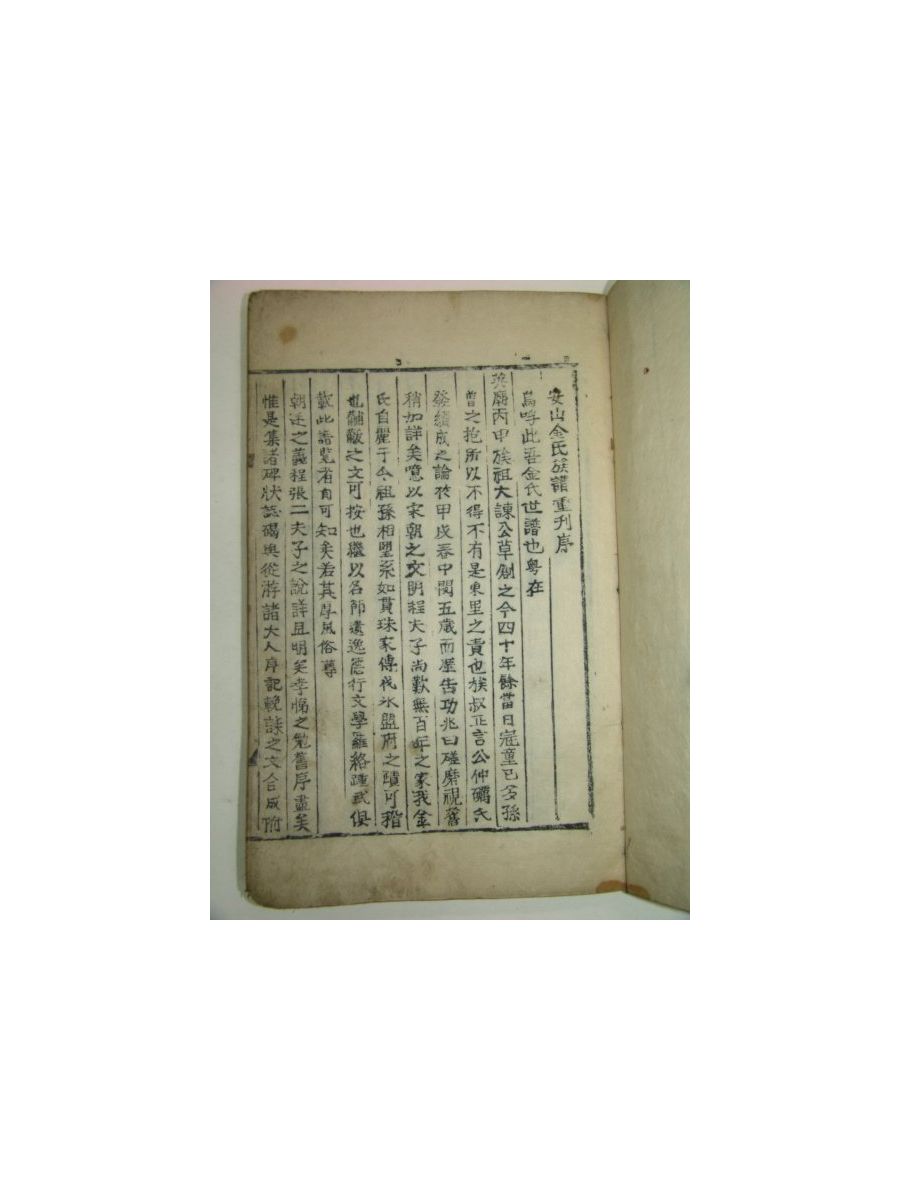 安山金氏族譜重刊序
嗚呼此吾金氏世譜也粤在
英廟丙甲族祖大諫公草創之今四十年餘當日冠童已多孫
曾之抱所以不得不有是東里之責也族叔正言公仲礪氏
發續成之論於甲戌春中閱五歲而屢告功兆曰磋磨視舊
稍加詳矣噫以宋朝之文明程夫子尚歎無百年之家我金
氏自麗于今祖孫相望系如貫珠家傳伐氷盟府之蹟可稽
也黼黻之文可按也繼以名節遺逸篤行文學羅絡踵武俱
載此譜覽者自可知矣若其厚風俗尊
朝廷之義程張二夫子之說詳且明矣孝悌之勉舊序盡矣
惟是集諸碑狀誌碣與從游諸大人序記輓誄之文合成附